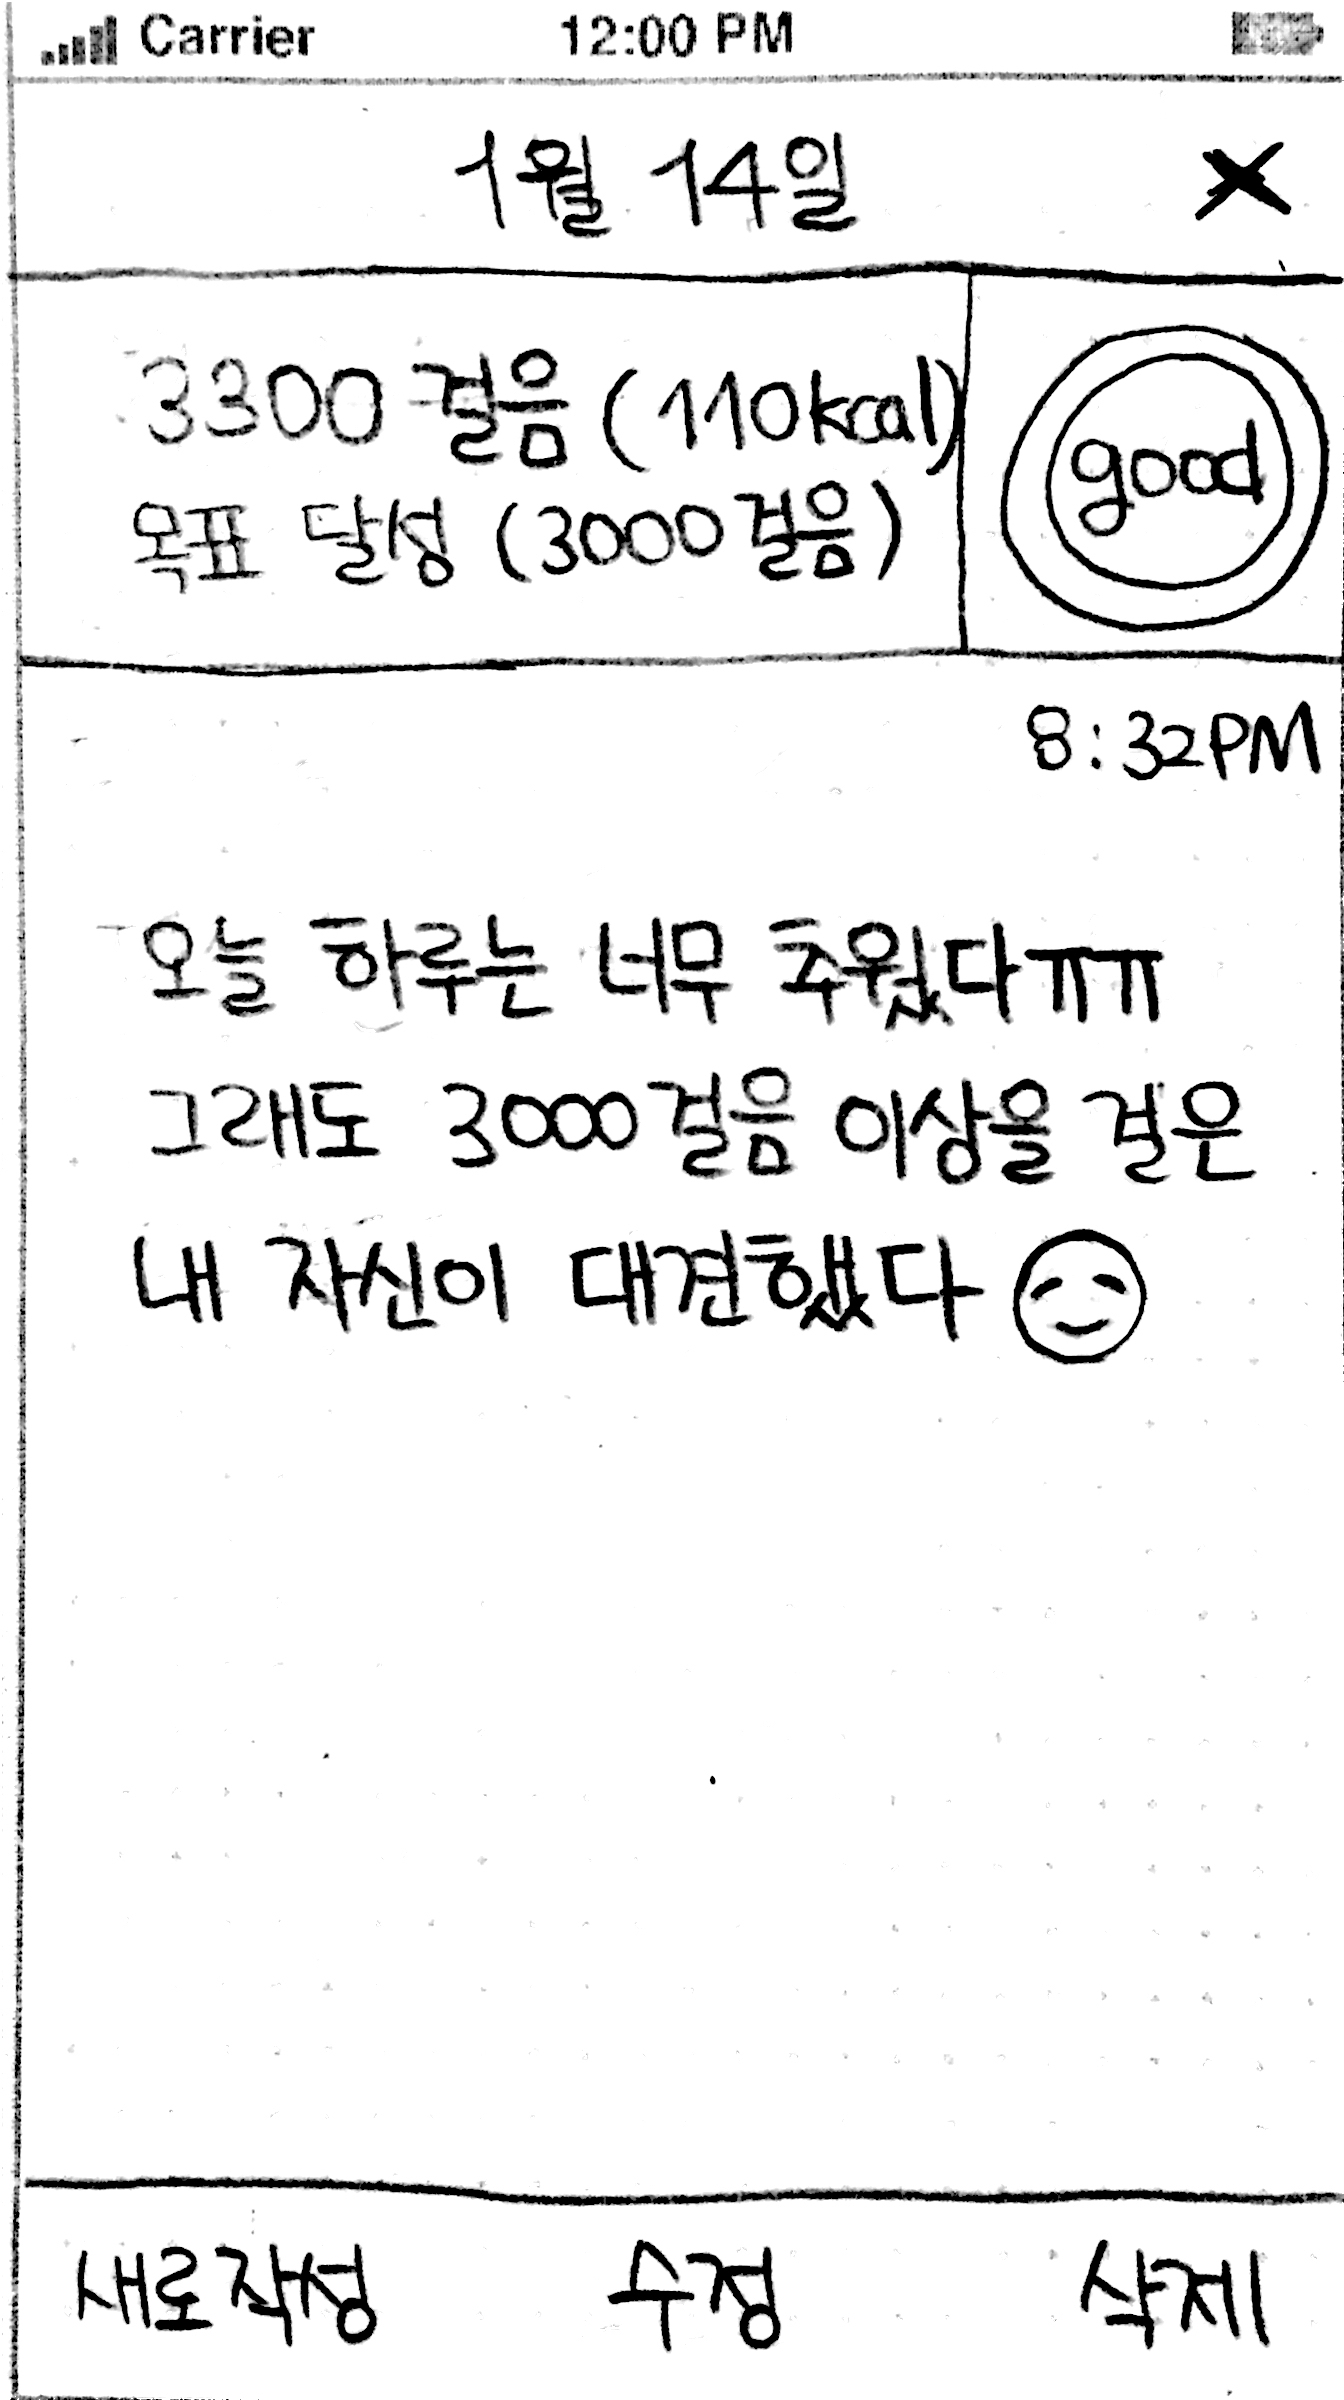 Carrier 12:00 PM
1월 14일 X
3300걸음 (110kcal)
목표 달성 (3000걸음)
good
8:32PM
오늘 하루는 너무 추웠다ㅠㅠ
그래도 3000걸음 이상을 걸은
내 자신이 대견했다
새로작성 수정 삭제